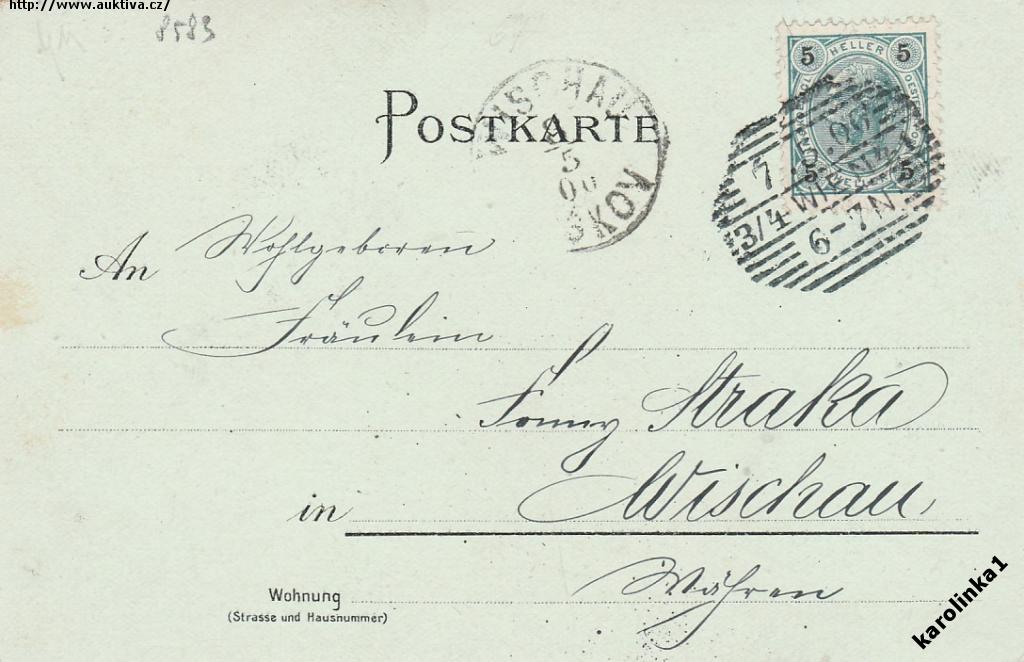 http://www.auktiva.cz/
8583
5 HELLER 5
POSTKARTE
WISCHAU
8
5
00
VYŠKOV
7
3/4 WIEN
6-7N
5 HELLER 5
An Wohlgeboren
Fräulein
Fanny Straka
in Wischau,
Mähren
Wohnung
(Strasse und Hausnummer)
karolinka1